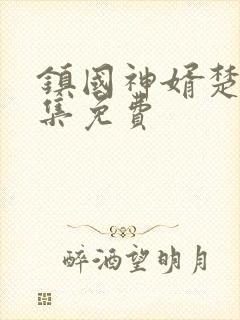 鎮國神婿楚
集免費
醉酒望明月